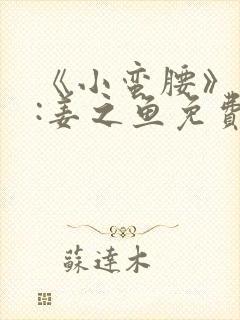 《小蛮腰》
:姜之鱼免費
蘇達木